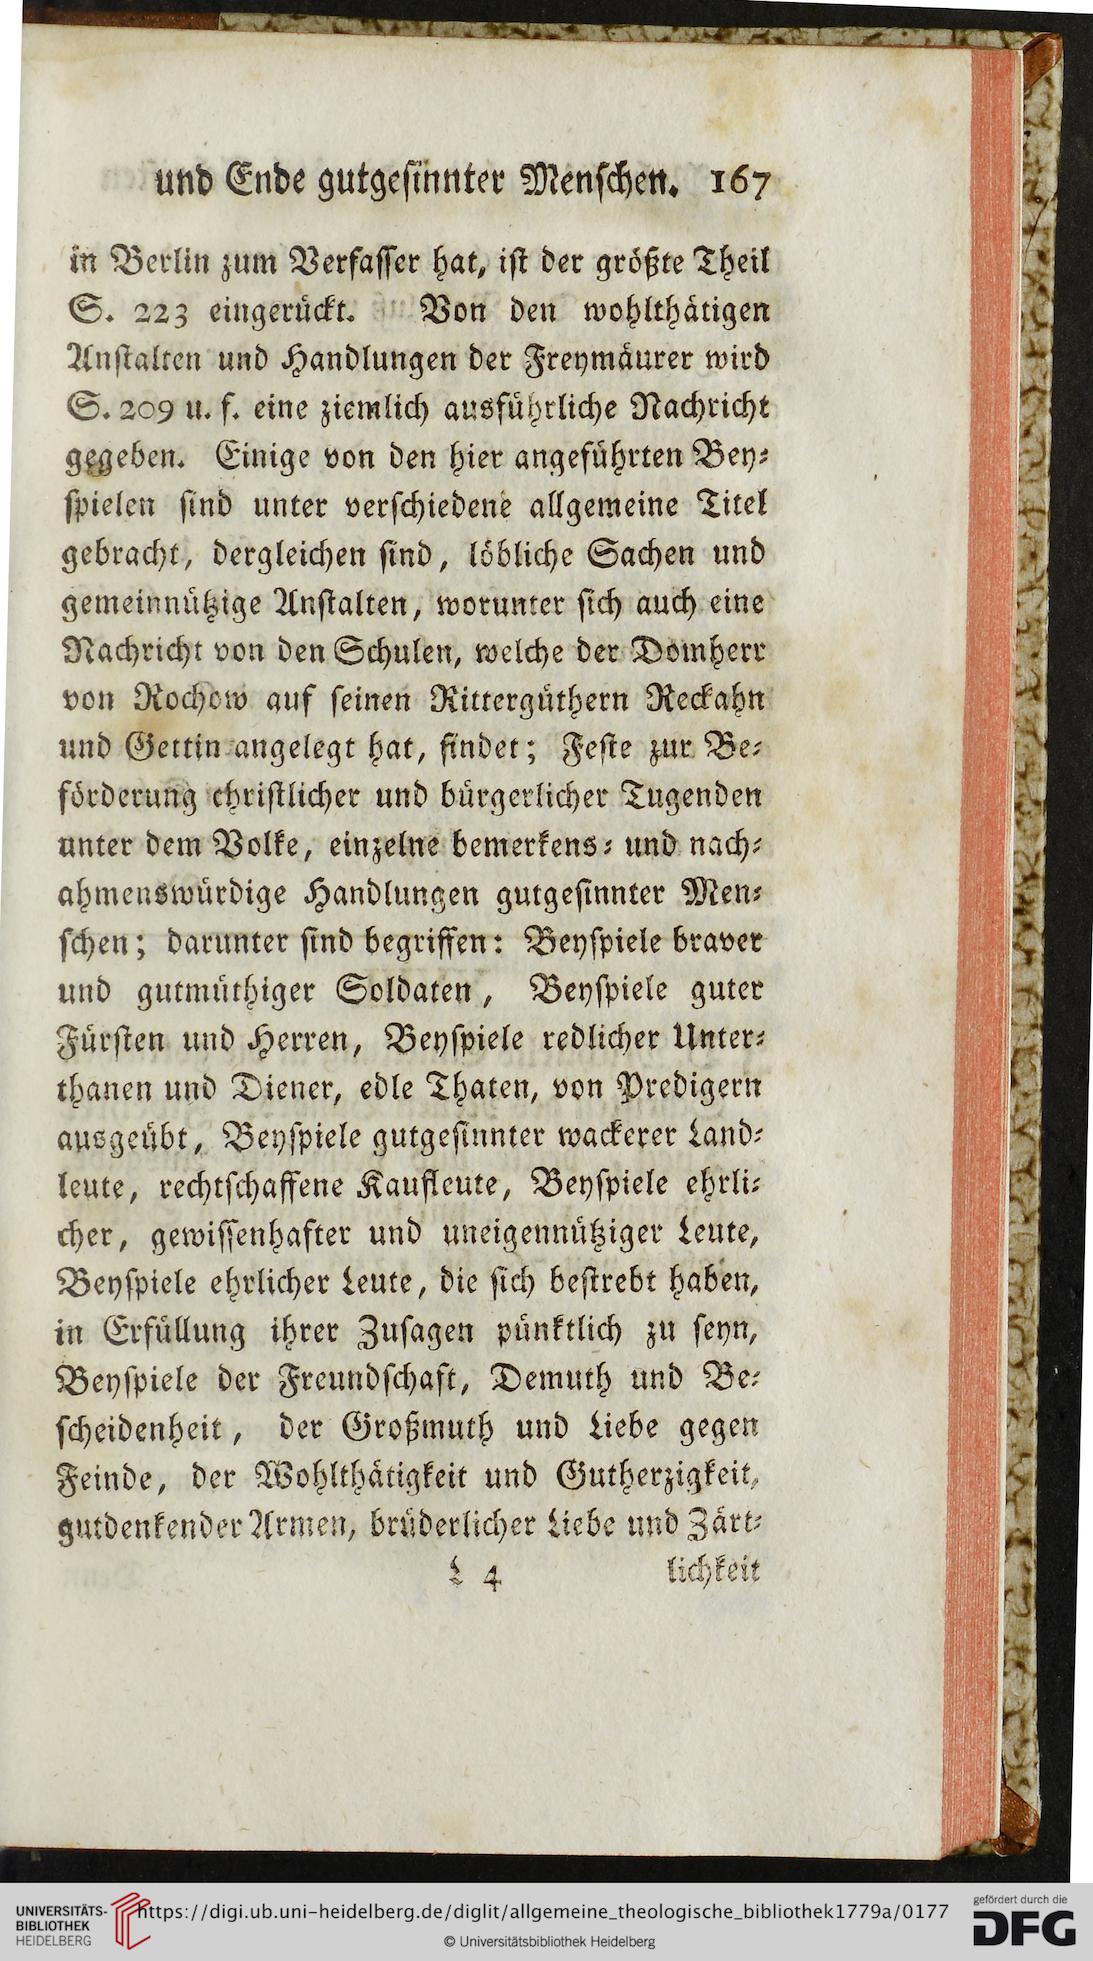 und Ende gutgesinnter Menschen. 167
in Berlin zum Verfasser hat, ist der größte Theil
S. 223 eingerückt. Von den wohlthätigen
Anstalten und Handlungen der Freymäurer wird
S. 209 u. f. eine ziemlich ausführliche Nachricht
gegeben. Einige von den hier angeführten Bey-
spielen sind unter verschiedene allgemeine Titel
gebracht, dergleichen sind, löbliche Sachen und
gemeinnützige Anstalten, worunter sich auch eine
Nachricht von den Schulen, welche der Domherr
von Rochow auf seinen Rittergüthern Reckahn
und Gettin angelegt hat, findet; Feste zur Be-
förderung christlicher und bürgerlicher Tugenden
unter dem Volke, einzelne bemerkens- und nach-
ahmenswürdige Handlungen gutgesinnter Men-
schen; darunter sind begriffen: Beyspiele braver
und gutmüthiger Soldaten, Beyspiele guter
Fürsten und Herren, Beyspiele redlicher Unter-
thanen und Diener, edle Thaten, von Predigern
ausgeübt, Beyspiele gutgesinnter wackerer Land-
leute, rechtschaffene Kaufleute, Beyspiele ehrli-
cher, gewissenhafter und uneigennütziger Leute,
Beyspiele ehrlicher Leute, die sich bestrebt haben,
in Erfüllung ihrer Zusagen pünktlich zu seyn,
Beyspiele der Freundschaft, Demuth und Be-
scheidenheit, der Großmuth und Liebe gegen
Feinde, der Wohlthätigkeit und Gutherzigkeit,
gutdenkender Armen, brüderlicher Liebe und Zärt-
L 4 lichkeit
UNIVERSITÄTS-
BIBLIOTHEK
HEIDELBERG
https://digi.ub.uni-heidelberg.de/diglit/allgemeine_theologische_bibliothek1779a/0177
© Universitätsbibliothek Heidelberg
gefördert durch die
DFG